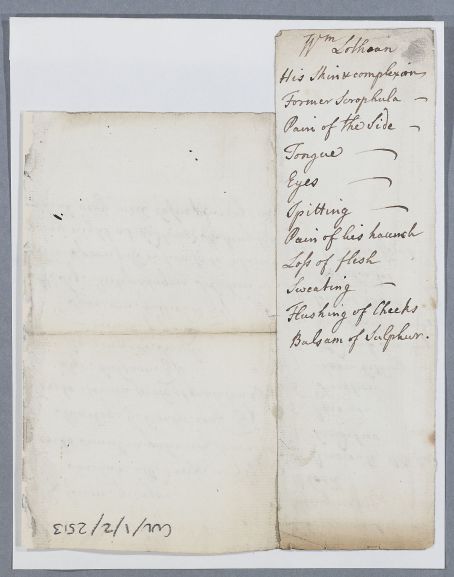 Wm Lothean
His Skin & complexion
Former Scrophula —
Pain of the Side —
Tongue —
Eyes —
Spitting —
Pain of his haunch
Loss of flesh
Sweating —
Flushing of Cheeks
Balsam of Sulphur.
CUL/1/2/2513